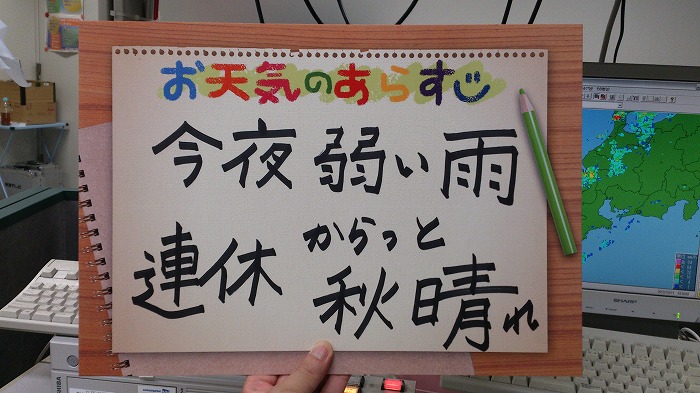 お天気のあらすじ
今夜 弱い雨
連休 からっと
秋晴れ
SHARP